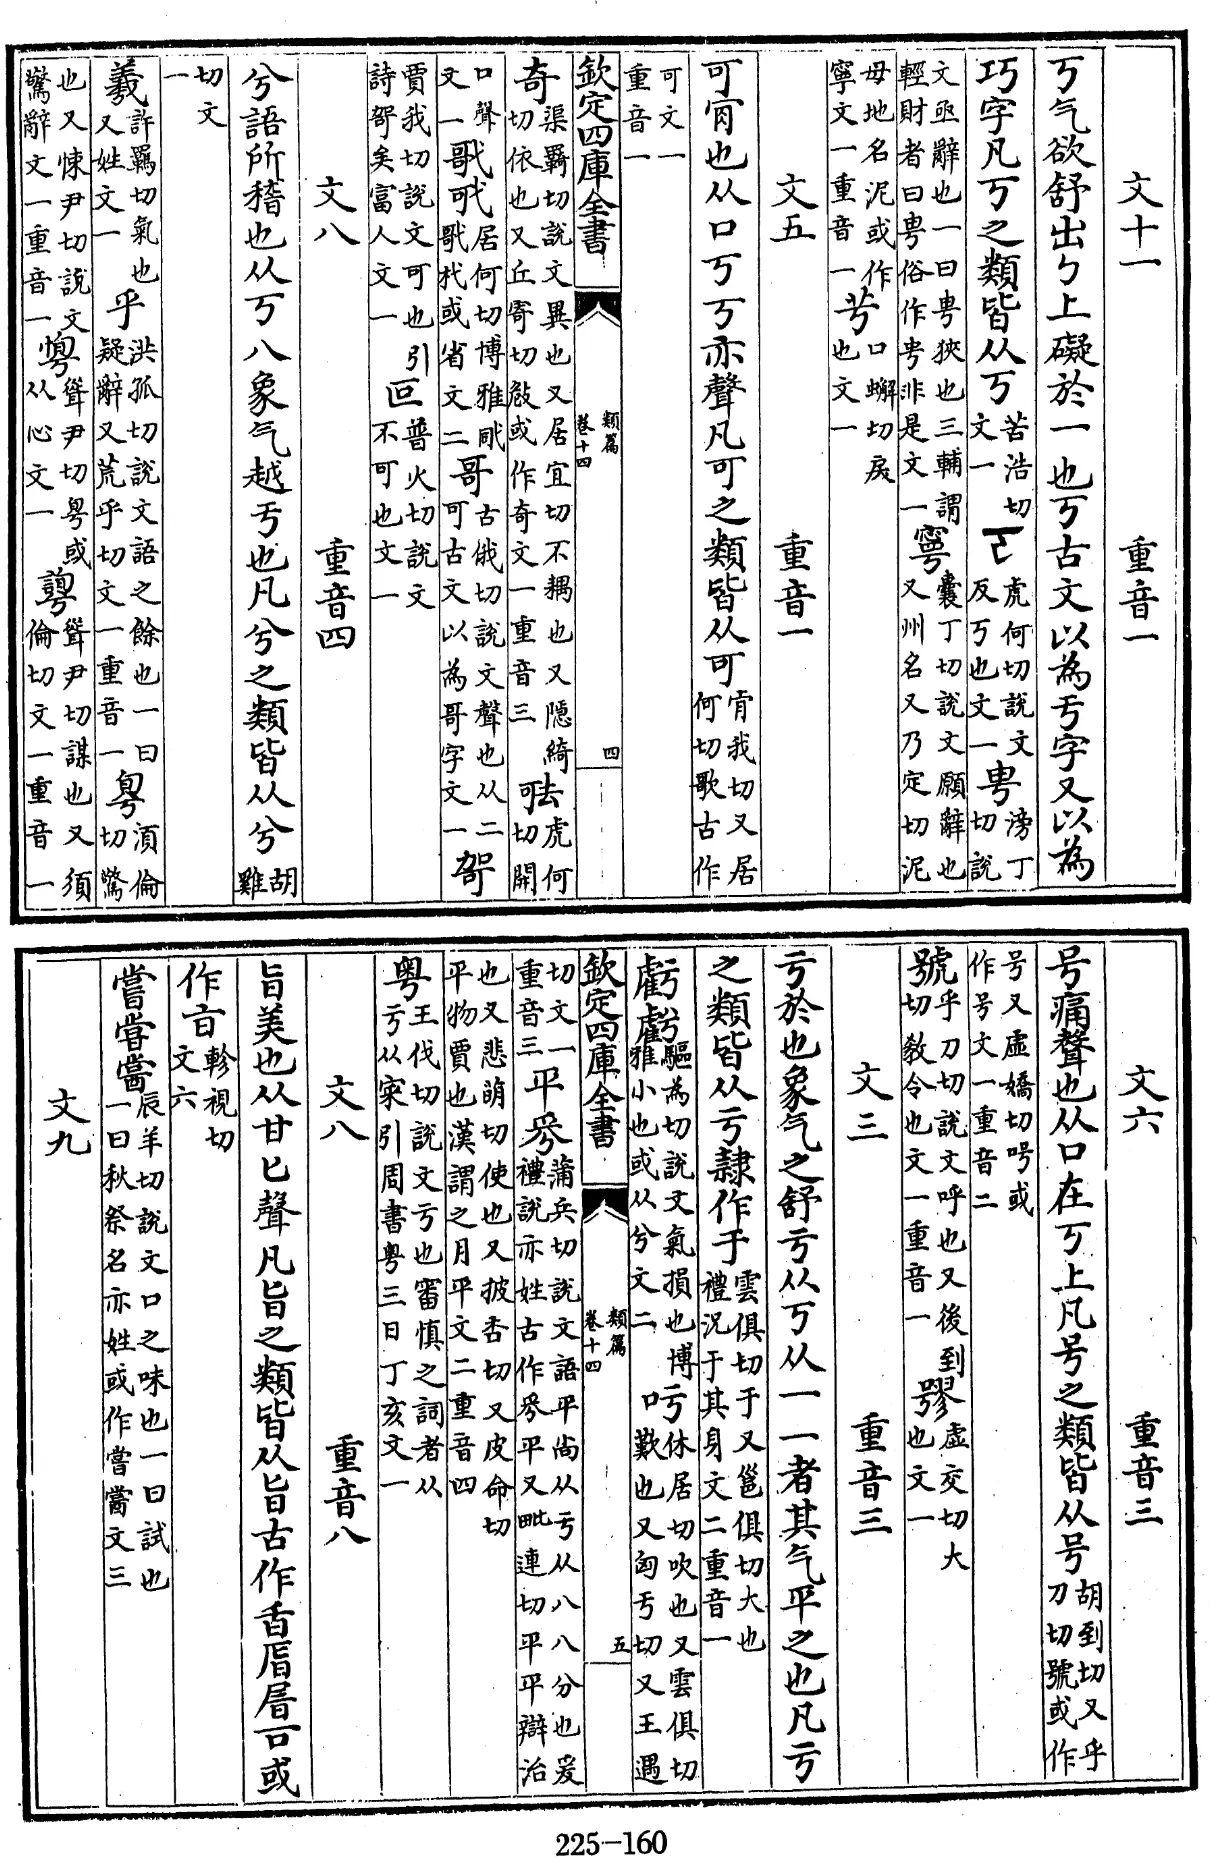 文十一　重音一
丂气欲舒出㇉上礙於一也丂古文以為亏字又以為
巧字凡丂之類皆从丂苦浩切文一𠀀虎何切說文反丂也文一甹滂丁切說
文亟辭也一曰甹狹也三輔謂輕財者曰甹俗作甹非是文一寧囊丁切說文願辭也又州名又乃定切泥
母地名泥或作寧文一重音一䒓口蠏切戾也文一
文五　重音一
可肎也从口丂丂亦聲凡可之類皆从可肎我切又居何切歌古作
可文一重音一
欽定四庫全書　類篇卷十四　四
奇渠羇切說文異也又居宜切不耦也又隱綺切依也又丘寄切攲或作奇文一重音三㰤虎何切開
口聲文一哥戈居何切博雅戙歌杙或省文二哥古俄切說文聲也从二可古文以為哥字文一哿
賈我切說文可也引詩哿矣富人文一叵普火切說文不可也文一
文八　重音四
兮語所稽也从丂八象气越亏也凡兮之類皆从兮胡雞
切文一
羲許羈切氣也又姓文一乎洪孤切說文語之餘也一曰疑辭又荒乎切文一重音一粤須倫切驚
也又悚尹切說文驚辭文一重音一惸聳尹切粤或从心文一䛬聳尹切謀也又須倫切文一重音一
文六　重音三
号痛聲也从口在丂上凡号之類皆从号胡到切又乎刀切號或作
号又虛嬌切呺或作号文一重音二
號乎刀切說文呼也又後到切敎令也文一重音一嘐虛交切大也文一
文三　重音三
亏於也象气之舒亏从丂从一一者其气平之也凡亏
之類皆从亏隷作于雲俱切于又邕俱切大也禮況于其身文二重音一
虧虧驅為切說文氣損也博雅小也或从兮文二吁休居切吹也又雲俱切歎也又匈亏切又王遇
欽定四庫全書　類篇卷十四　五
切文一重音三平𠀠蒲兵切說文語平尚从亏从八八分也爰禮說亦姓古作𠀠平又毗連切平平辯治
也又悲萌切使也又披杏切又皮命切平物賈也漢謂之月平文二重音四
粤王伐切說文亏也審慎之詞者从亏从宷引周書粤三日丁亥文一
文八　重音八
旨美也从甘匕聲凡旨之類皆从旨古作舌
作𣅌軫視切文六
嘗甞甞辰羊切說文口之味也一曰試也一曰秋祭名亦姓或作甞甞文三
文九
225-160